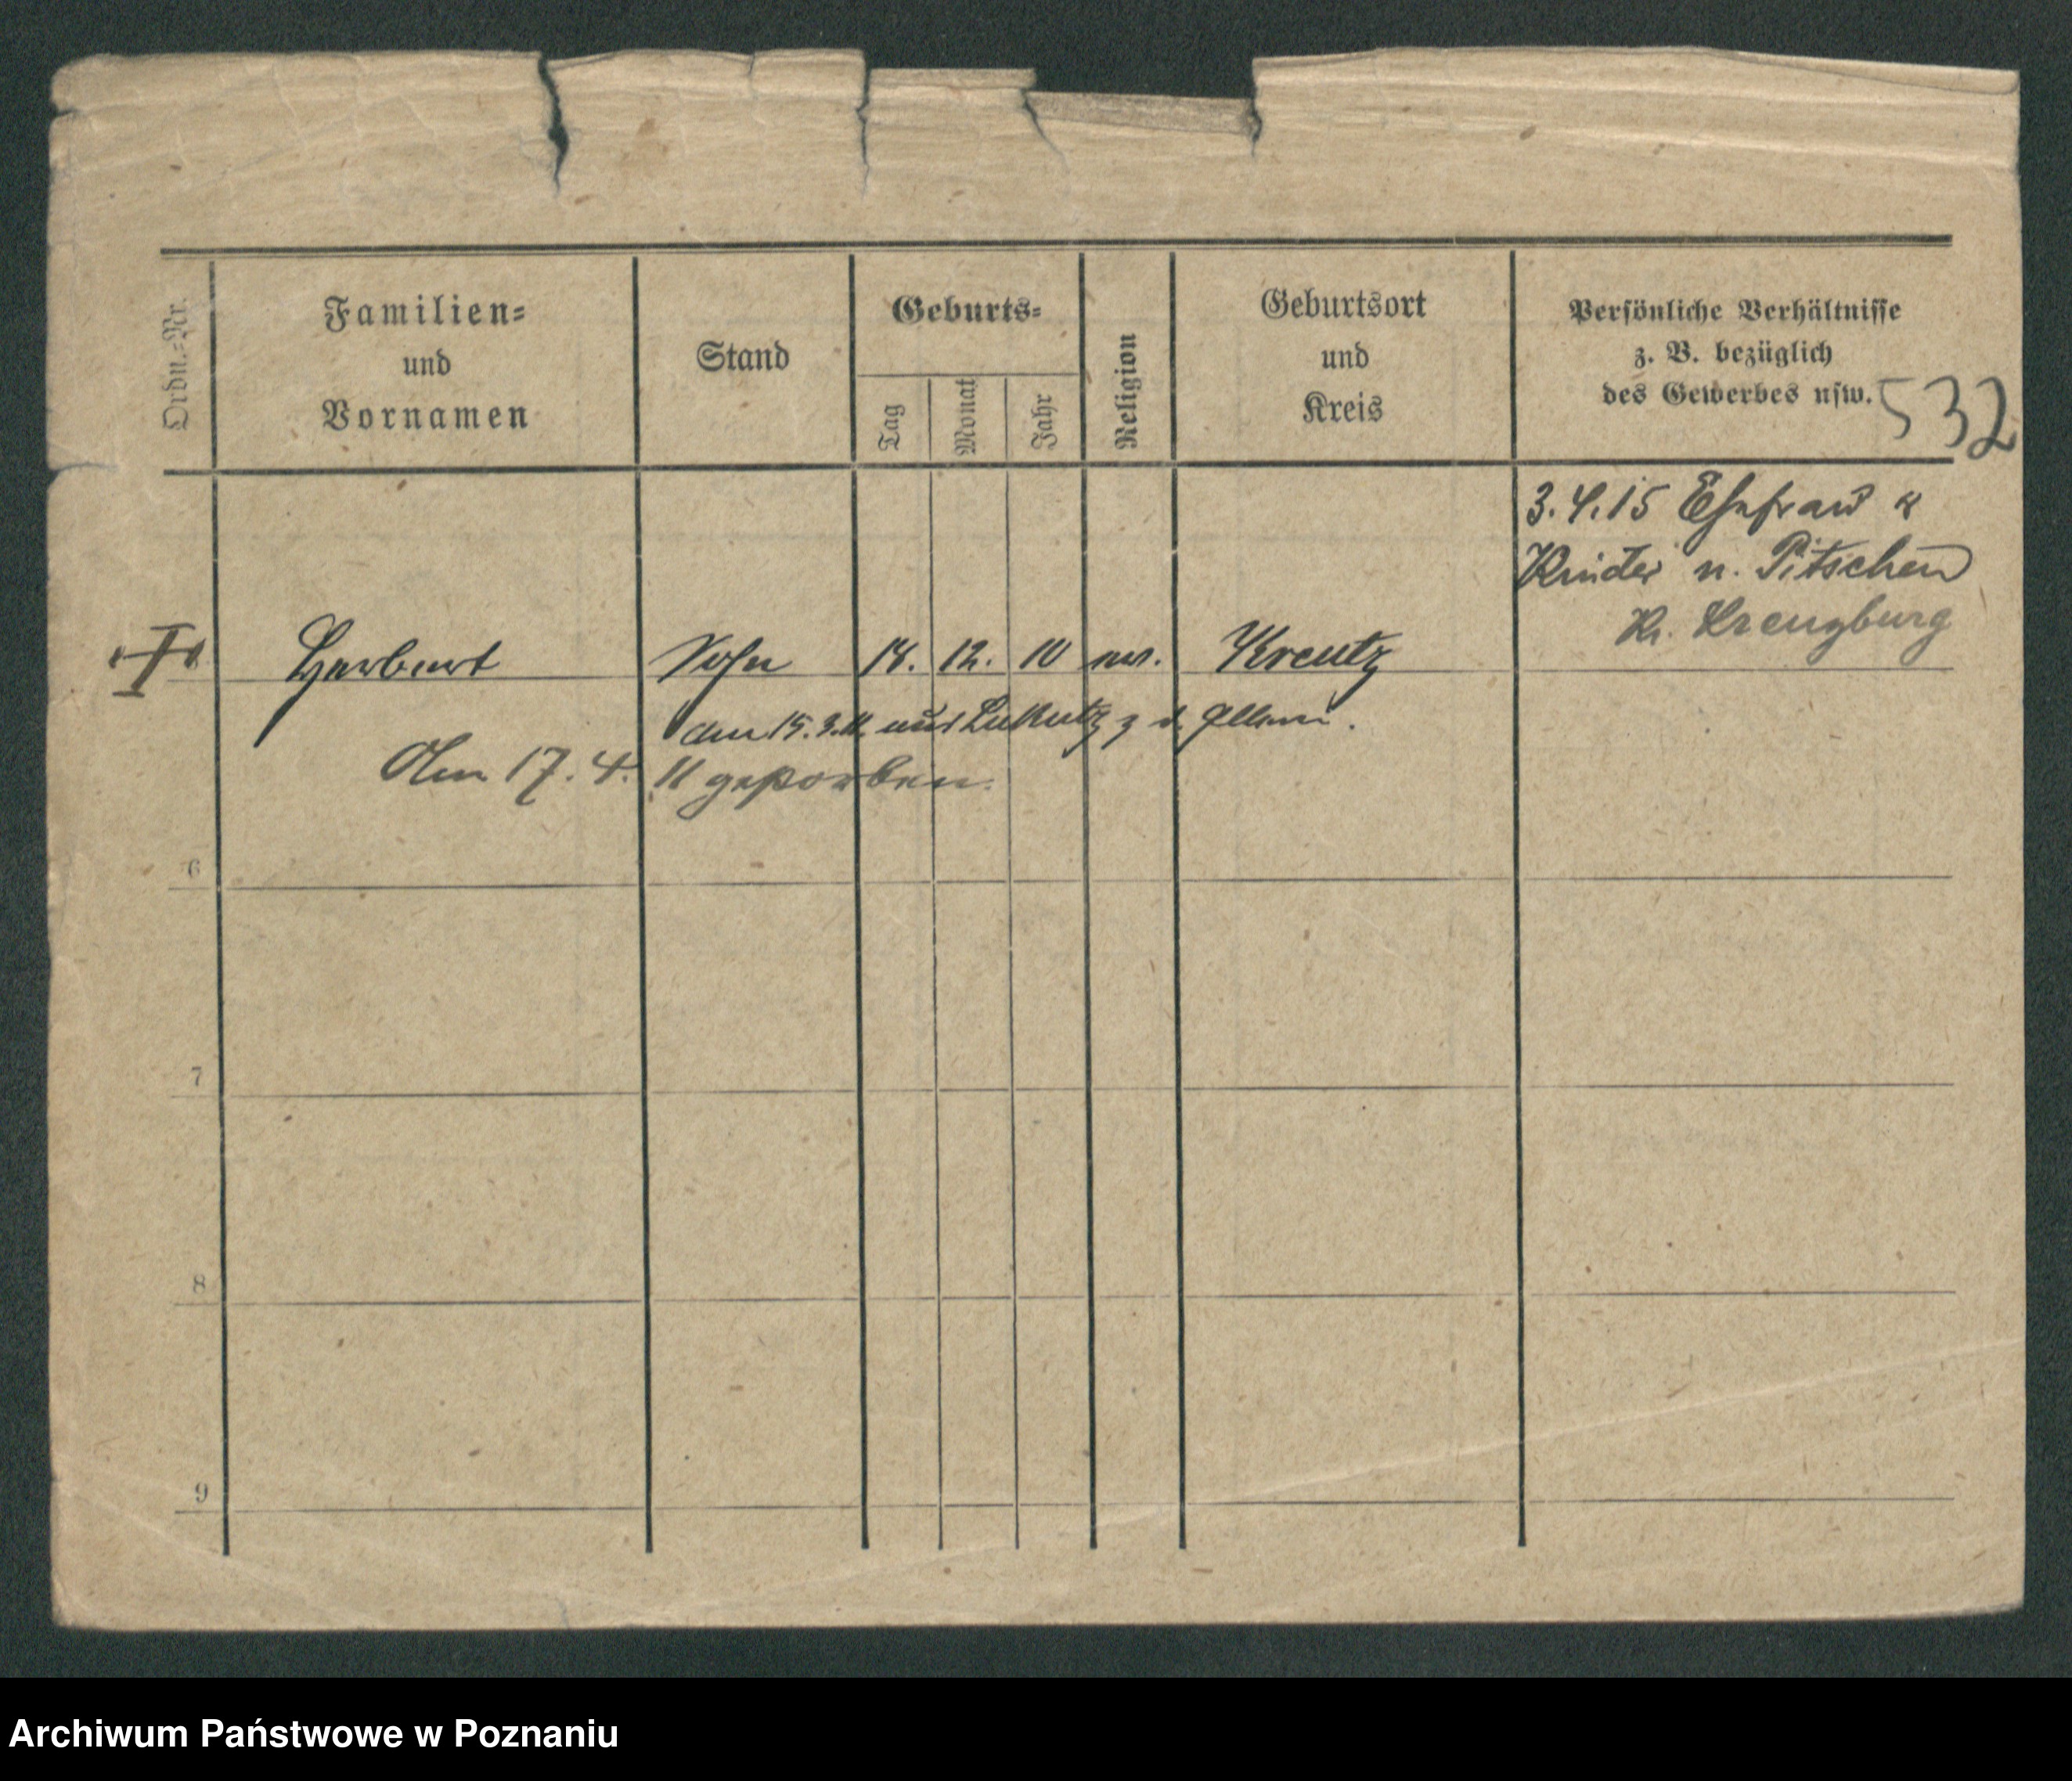 Ordn.=Nr.
Familien=
und
Vornamen
Stand
Geburts=
Tag
Monat
Jahr
Religion
Geburtsort
und
Kreis
Persönliche Verhältnisse
z. B. bezüglich
des Gewerbes usw.
532
3.4.15 Ehefrau &
Kinder n. Pitschen
Kr. Kreuzburg
Herbert Sohn 18. 12. 10 ev. Kreutz
am 15.3.11 aus z. d. Eltern.
Am 17. 4. 11 gestorben.
6
7
8
9
Archiwum Państwowe w Poznaniu